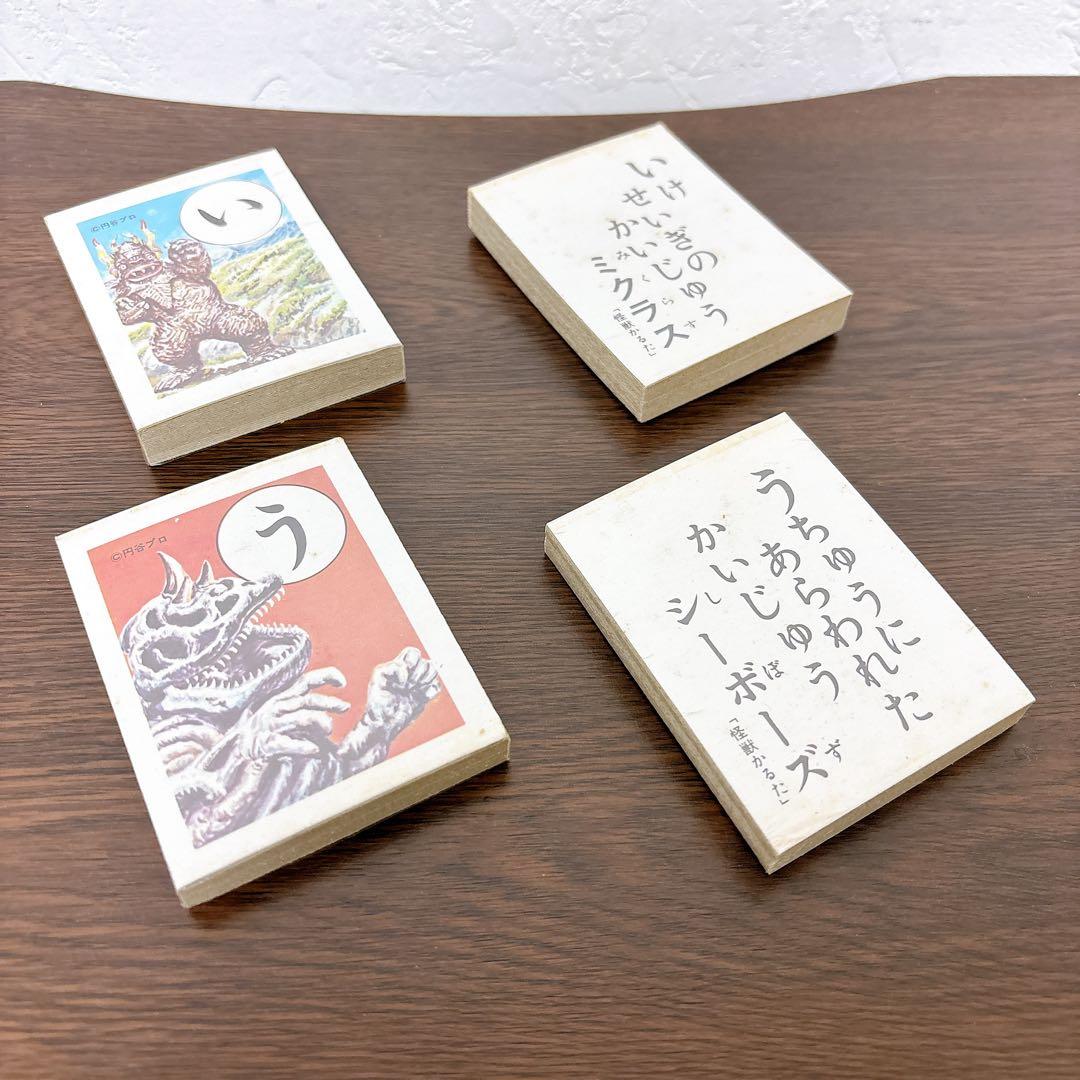 い
©円谷プロ
いけ
せいぎの
かいじゅう
みくらす
ミクラス
「怪獣かるた」
う
©円谷プロ
うちゅうに
あらわれた
かいじゅう
しぼず
シーボーズ
「怪獣かるた」